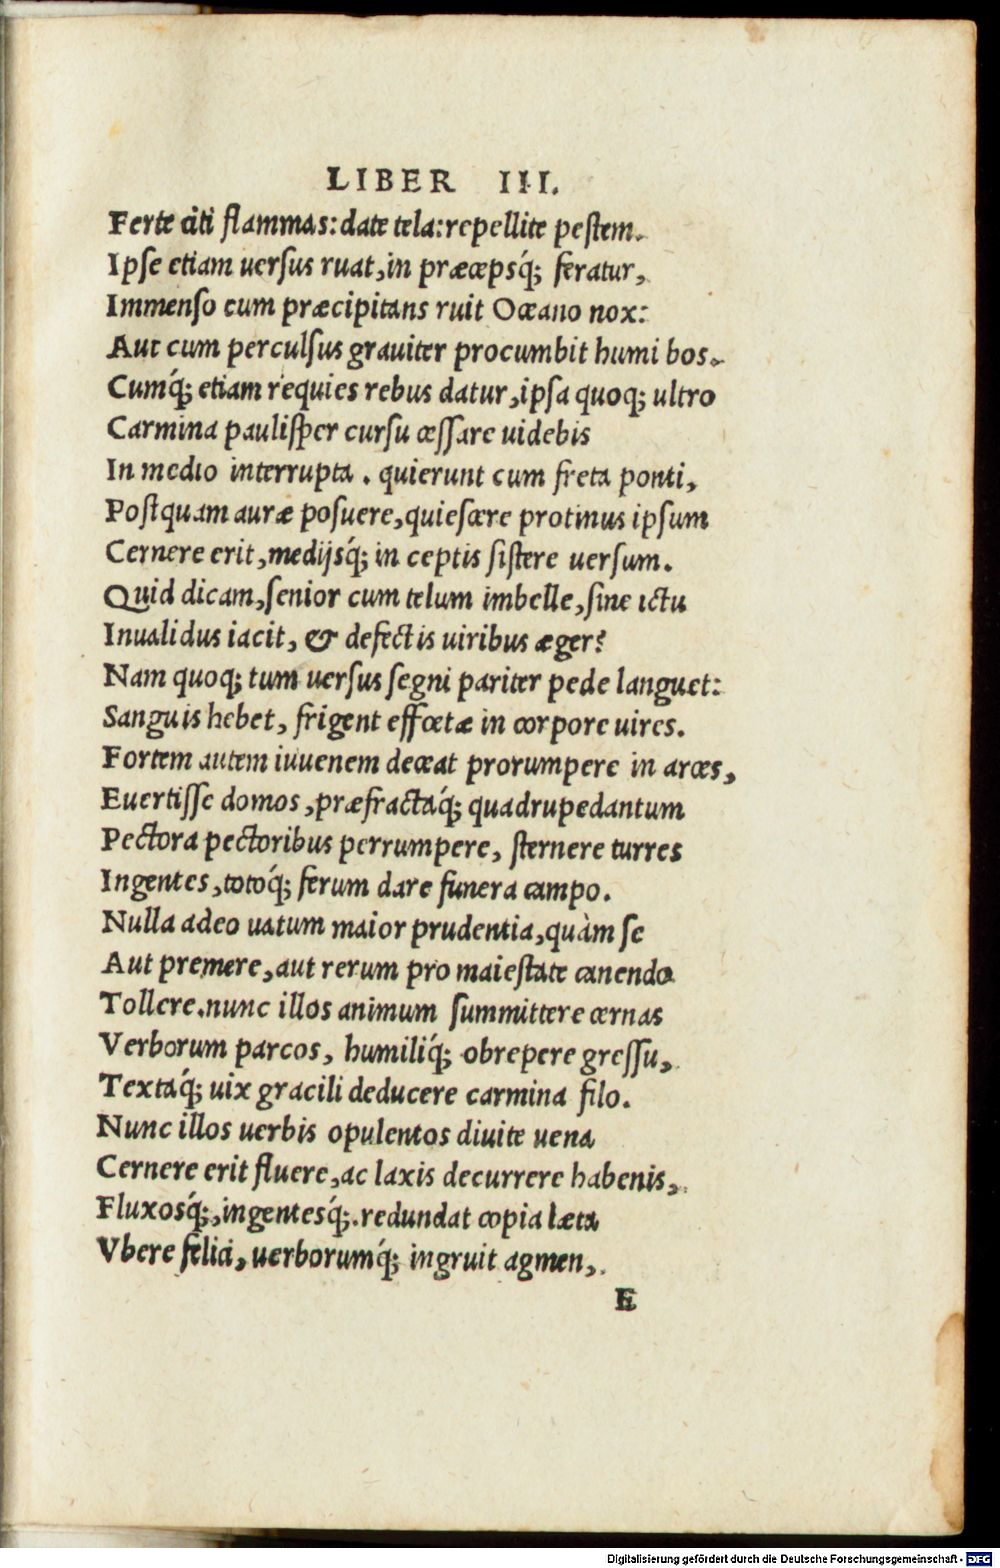 LIBER III.
Ferte citi flammas: date tela: repellite pestem.
Ipse etiam uersus ruat, in præcepsq́; feratur,
Immenso cum præcipitans ruit Oceano nox:
Aut cum perculsus grauiter procumbit humi bos.
Cumq́; etiam requies rebus datur, ipsa quoq; ultro
Carmina paulisper cursu cessare uidebis
In medio interrupta. quierunt cum freta ponti,
Postquam auræ posuere, quiescere protinus ipsum
Cernere erit, medijsq́; in ceptis sistere uersum.
Quid dicam, senior cum telum imbelle, sine ictu
Inualidus iacit, & defectis uiribus æger?
Nam quoq; tum uersus segni pariter pede languet:
Sanguis hebet, frigent effœtæ in corpore uires.
Fortem autem iuuenem deceat prorumpere in arces,
Euertisse domos, præfractaq́; quadrupedantum
Pectora pectoribus perrumpere, sternere turres
Ingentes, totoq́; ferum dare funera campo.
Nulla adeo uatum maior prudentia, quàm se
Aut premere, aut rerum pro maiestate canendo
Tollere. nunc illos animum summittere cernas
Verborum parcos, humiliq́; obrepere gressu,
Textaq́; uix gracili deducere carmina filo.
Nunc illos uerbis opulentos diuite uena
Cernere erit fluere, ac laxis decurrere habenis,
Fluxosq́;, ingentesq́;. redundat copia læta
Vbere felici, uerborumq́; ingruit agmen,
E
Digitalisierung gefördert durch die Deutsche Forschungsgemeinschaft - DFG